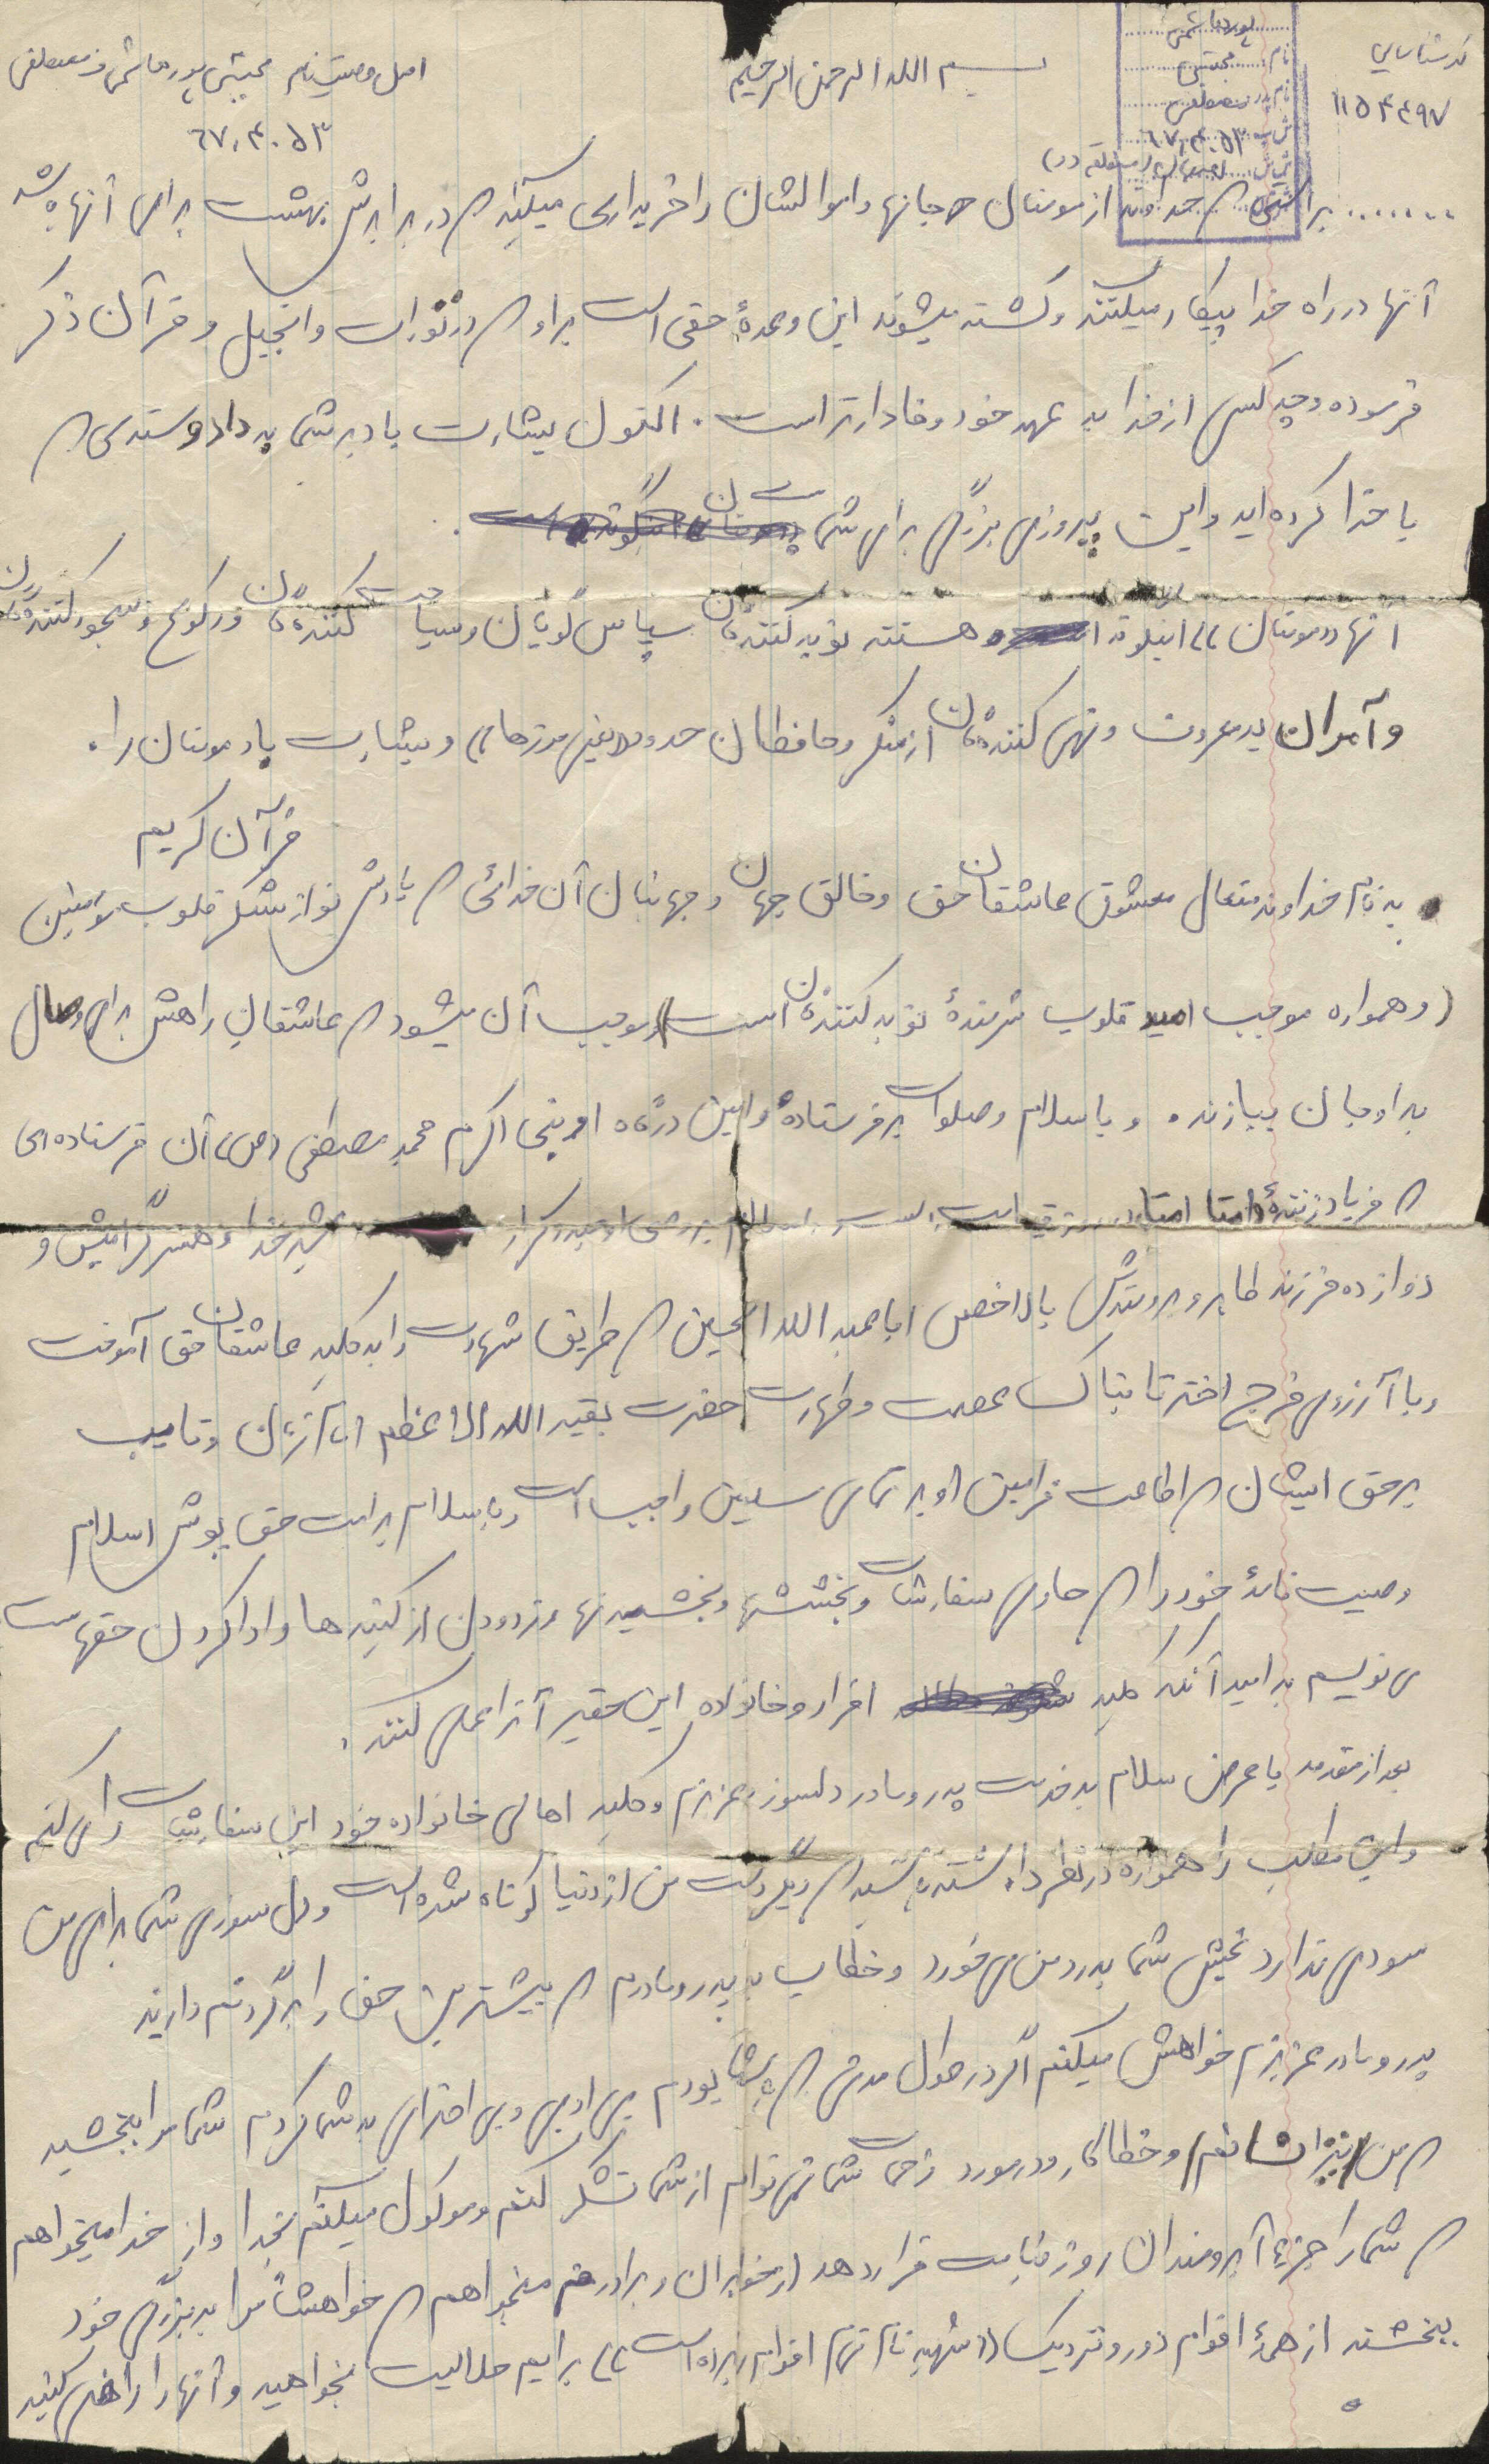 کد شناسایی
۱۱۵۴۴۹۷
پورهاشمی
نام: مجتبی
نام پدر: مصطفی
۶۷،۴۰۵۳
بسم الله الرحمن الرحیم
اصل وصیت‌نامه مجتبی پورهاشمی ف مصطفی
۶۷،۴۰۵۳
....... براستیکه خداوند از مومنان جانها و اموالشان را خریداری میکند که در برابرش بهشت برای آنها باشد
آنها در راه خدا پیکار میکنند و کشته میشوند این وعدهٔ حقی است بر او که در تورات و انجیل و قرآن ذکر
فرموده و چه کسی از خدا به عهد خود وفادارتر است. اکنون بشارت باد بر شما به داد و ستدی که
با خدا کرده‌اید و این پیروزی بزرگی برای شماست
آنها «مومنان» اینگونه هستند توبه کنندگان سپاس گویان و سیاحت کنندگان و رکوع و سجود کنندگان
و آمران به معروف و نهی کنندگان از منکر و حافظان حدود یعنی مرزها» و بشارت باد مومنان را.
قرآن کریم
به نام خداوند متعال معشوق عاشقان حق و خالق جهان و جهانیان آن خدائی که یادش نوازشگر قلوب مومنین
(و همواره موجب امید قلوب شرمندهٔ توبه کنندگان است) و موجب آن میشود که عاشقانِ راهش برای وصال
به او جان ببازند. و با سلام و صلوات بر فرستادهٔ و امین درگاه او نبی اکرم محمد مصطفی (ص) آن فرستاده‌ای
که فریاد زنندهٔ امتا امتا در روز قیامت است و با سلام بر وصی او حیدر کرار شیر خدا و همسر گرامیش و
دوازده فرزند طاهر و برومندش بالاخص اباعبدالله الحسین که طریق شهادت را به کلیه عاشقان حق آموخت
و با آرزوی فرج اختر تابناک عصمت و طهارت حضرت بقیه الله الاعظم امام زمان و نایب
بر حق ایشان که اطاعت فرامین او بر تمامی مسلمین واجب است و با سلام بر امت حق پوش اسلام
وصیت نامهٔ خود را که حاوی سفارشات و بخششها و بخشیدنها و زدودن از کینه‌ها و ادا کردن حقهاست
می نویسم به امید آنکه کلیه افراد و خانواده این حقیر آنرا عملی کنند.
بعد از مقدمه با عرض سلام به خدمت پدر و مادر دلسوز و عزیزم و کلیه اهالی خانواده خود این سفارشات را می کنم
و این مطلب را همواره در نظر داشته باشید که دیگر دست من از دنیا کوتاه شده است و دل سوزی شما برای من
سودی ندارد بخشش شما بدرد من می خورد و خطاب به پدر و مادرم که بیشترین حق را بر گردنم دارند
پدر و مادر عزیزم خواهش میکنم اگر در طول مدتی که با شما بودم بی ادبی و بی احترامی به شما کردم شما مرا ببخشید
که من نیز انسانم و خطاکار و در مورد زحمات شما نمی توانم از شما تشکر کنم و موکول میکنم بخدا و از خدا میخواهم
که شما را جزء آبرومندان روز قیامت قرار دهد از خواهران و برادرهم میخواهم که خواهشاً مرا به بزرگی خود
ببخشند از همهٔ اقوام دور و نزدیک برایم حلالیت بخواهید و آنها را راضی کنید